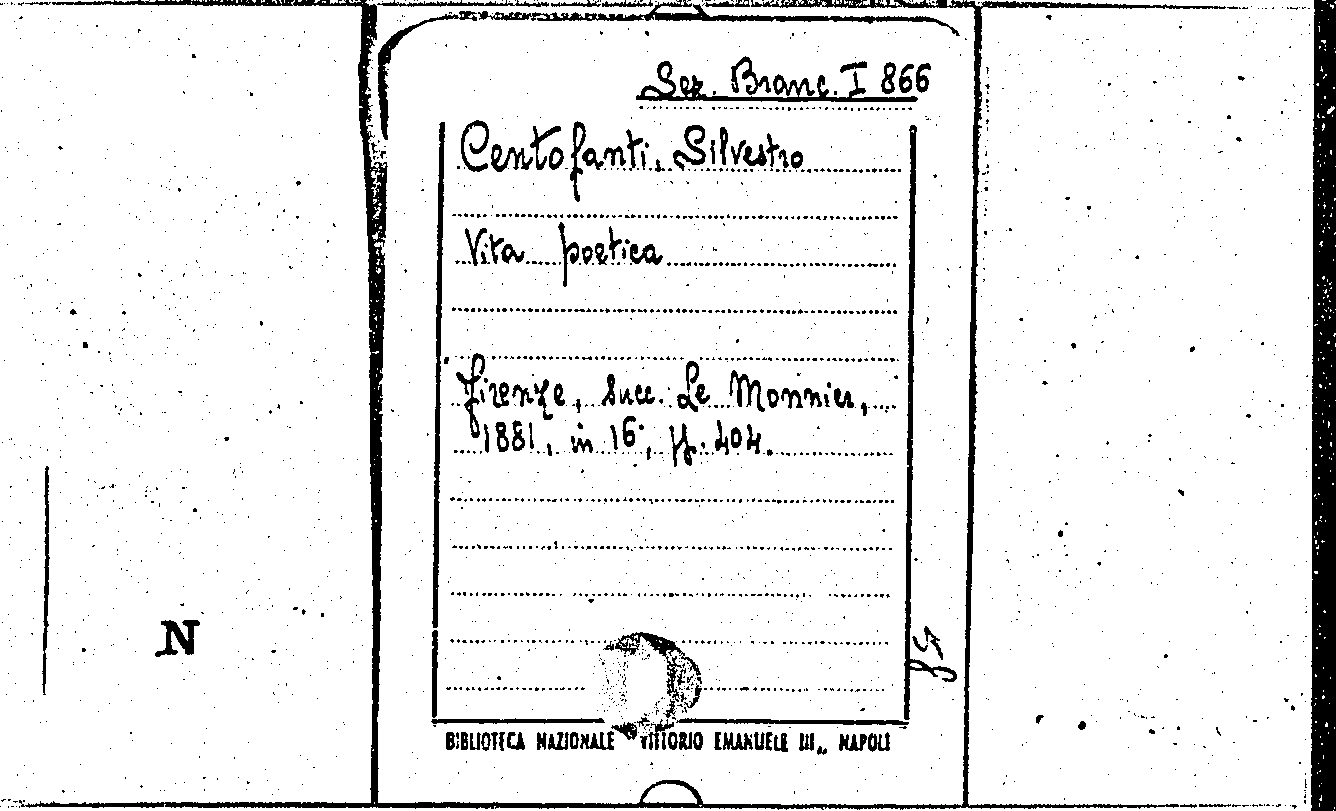 Sez. Branc. I 866
Centofanti, Silvestro
Vita poetica
Firenze, Succ. Le Monnier,
1881, in 16°, pp. 404.
N
BIBLIOTECA NAZIONALE "VITTORIO EMANUELE III„ NAPOLI